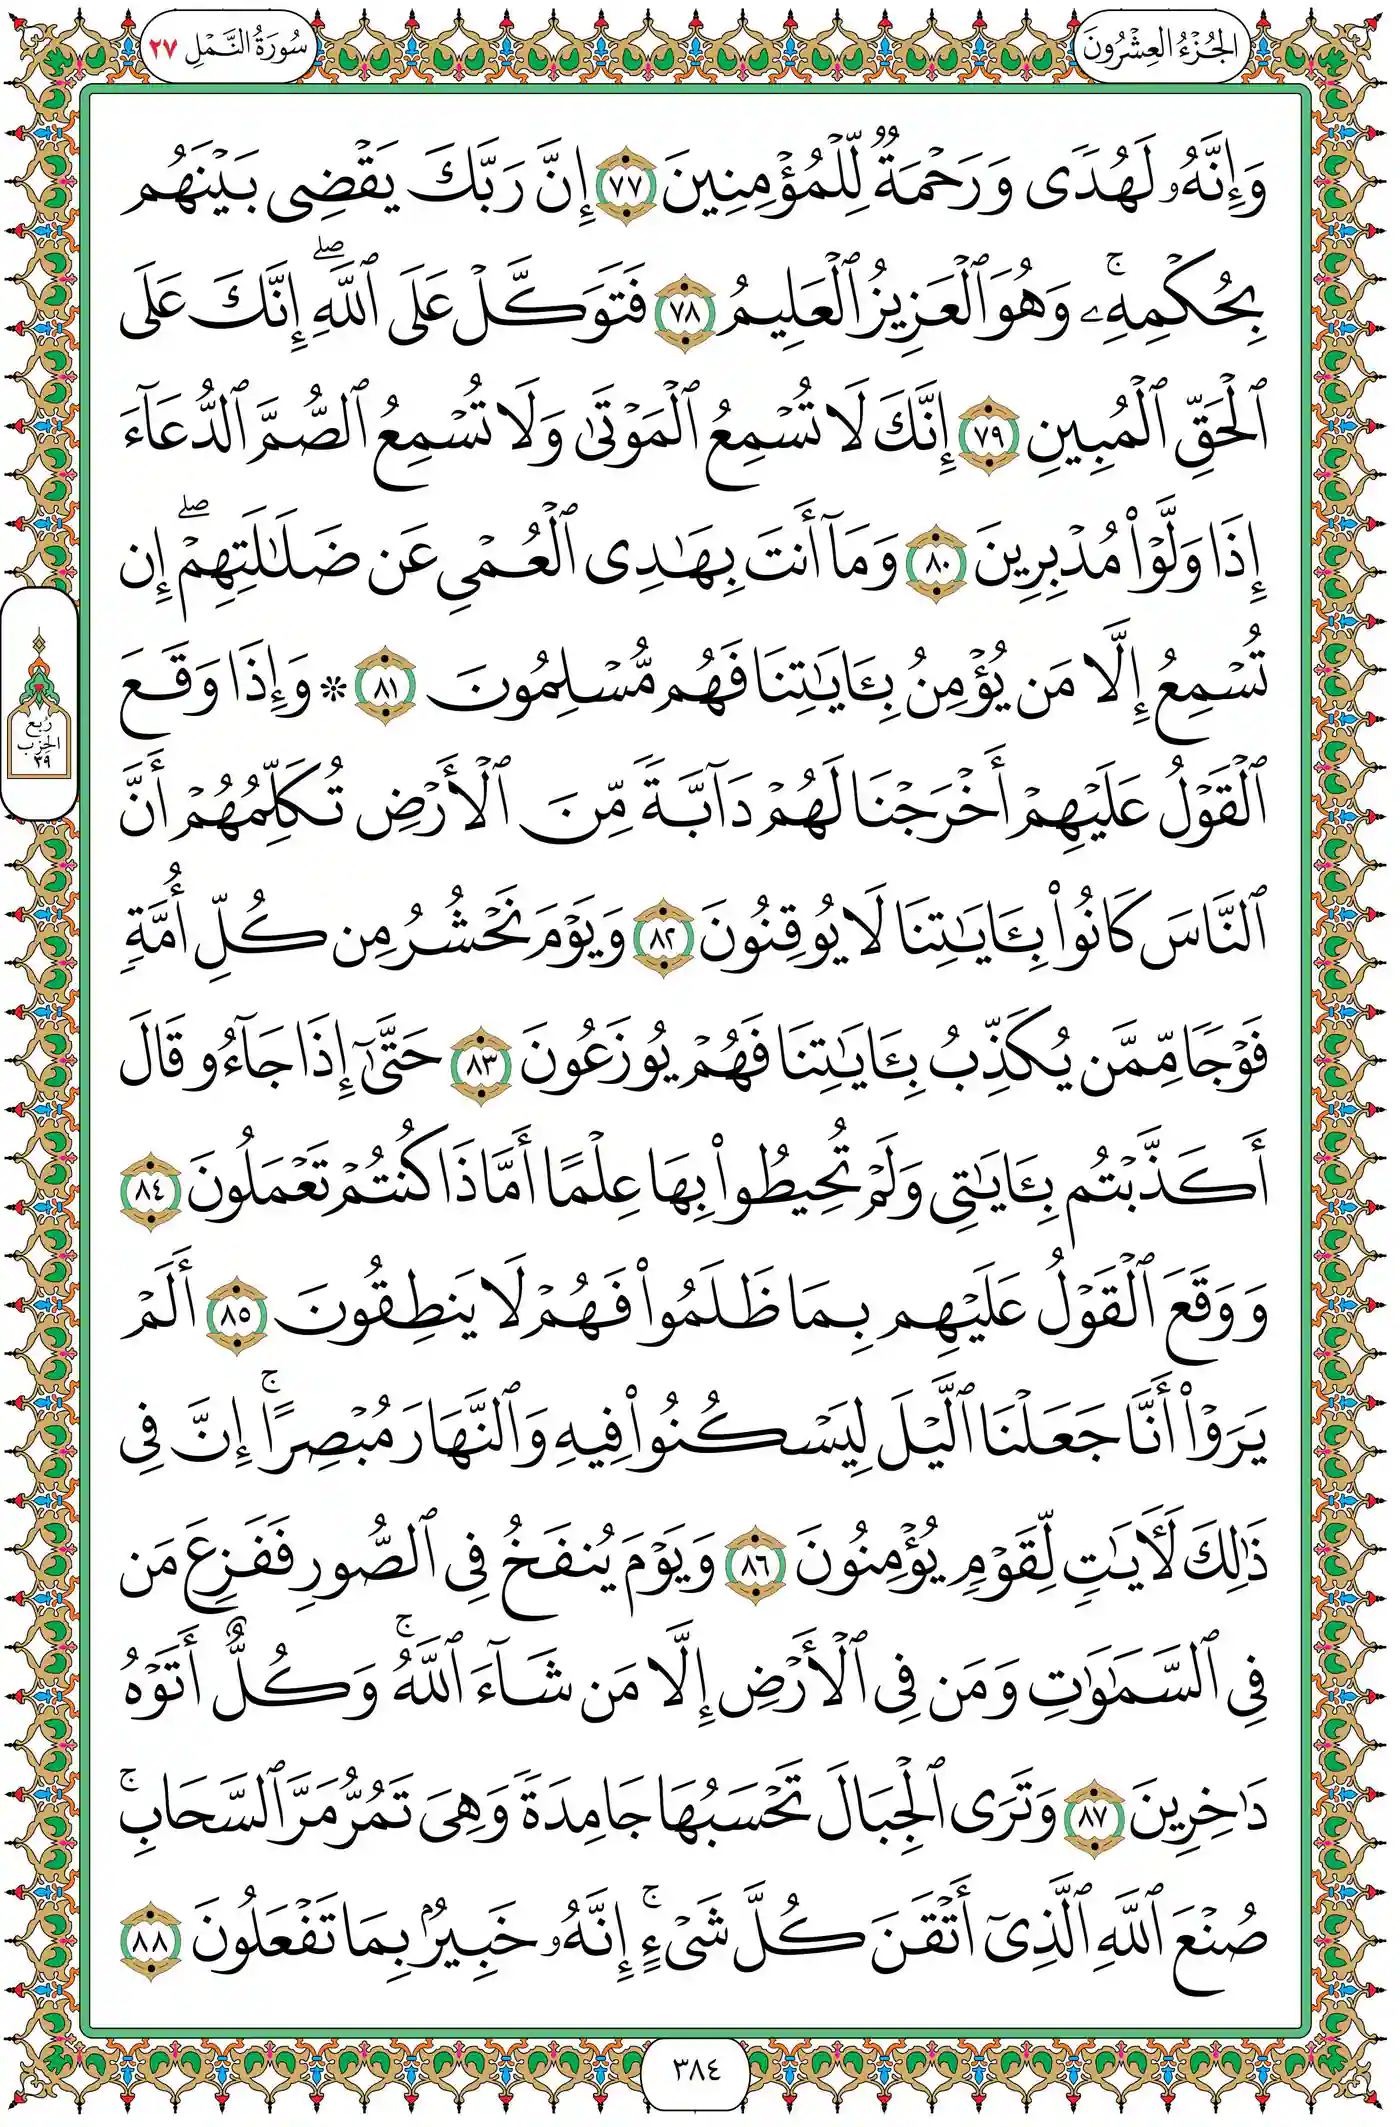 الجُزْءُ العِشْرُونَ
سُورَةُ النَّمْلِ ٢٧
وَإِنَّهُۥ لَهُدًى وَرَحْمَةٌ لِّلْمُؤْمِنِينَ ٧٧ إِنَّ رَبَّكَ يَقْضِى بَيْنَهُم
بِحُكْمِهِۦۚ وَهُوَ ٱلْعَزِيزُ ٱلْعَلِيمُ ٧٨ فَتَوَكَّلْ عَلَى ٱللَّهِۖ إِنَّكَ عَلَى
ٱلْحَقِّ ٱلْمُبِينِ ٧٩ إِنَّكَ لَا تُسْمِعُ ٱلْمَوْتَىٰ وَلَا تُسْمِعُ ٱلصُّمَّ ٱلدُّعَآءَ
إِذَا وَلَّوْا۟ مُدْبِرِينَ ٨٠ وَمَآ أَنتَ بِهَـٰدِى ٱلْعُمْىِ عَن ضَلَـٰلَتِهِمْۖ إِن
تُسْمِعُ إِلَّا مَن يُؤْمِنُ بِـَٔايَـٰتِنَا فَهُم مُّسْلِمُونَ ٨١ ۞ وَإِذَا وَقَعَ
ٱلْقَوْلُ عَلَيْهِمْ أَخْرَجْنَا لَهُمْ دَآبَّةً مِّنَ ٱلْأَرْضِ تُكَلِّمُهُمْ أَنَّ
ٱلنَّاسَ كَانُوا۟ بِـَٔايَـٰتِنَا لَا يُوقِنُونَ ٨٢ وَيَوْمَ نَحْشُرُ مِن كُلِّ أُمَّةٍ
فَوْجًا مِّمَّن يُكَذِّبُ بِـَٔايَـٰتِنَا فَهُمْ يُوزَعُونَ ٨٣ حَتَّىٰٓ إِذَا جَآءُو قَالَ
أَكَذَّبْتُم بِـَٔايَـٰتِى وَلَمْ تُحِيطُوا۟ بِهَا عِلْمًا أَمَّاذَا كُنتُمْ تَعْمَلُونَ ٨٤
وَوَقَعَ ٱلْقَوْلُ عَلَيْهِم بِمَا ظَلَمُوا۟ فَهُمْ لَا يَنطِقُونَ ٨٥ أَلَمْ
يَرَوْا۟ أَنَّا جَعَلْنَا ٱلَّيْلَ لِيَسْكُنُوا۟ فِيهِ وَٱلنَّهَارَ مُبْصِرًاۚ إِنَّ فِى
ذَٰلِكَ لَـَٔايَـٰتٍ لِّقَوْمٍ يُؤْمِنُونَ ٨٦ وَيَوْمَ يُنفَخُ فِى ٱلصُّورِ فَفَزِعَ مَن
فِى ٱلسَّمَـٰوَٰتِ وَمَن فِى ٱلْأَرْضِ إِلَّا مَن شَآءَ ٱللَّهُۚ وَكُلٌّ أَتَوْهُ
دَٰخِرِينَ ٨٧ وَتَرَى ٱلْجِبَالَ تَحْسَبُهَا جَامِدَةً وَهِىَ تَمُرُّ مَرَّ ٱلسَّحَابِۚ
صُنْعَ ٱللَّهِ ٱلَّذِىٓ أَتْقَنَ كُلَّ شَىْءٍۚ إِنَّهُۥ خَبِيرٌۢ بِمَا تَفْعَلُونَ ٨٨
رُبع
الحِزْب
٣٩
٣٨٤